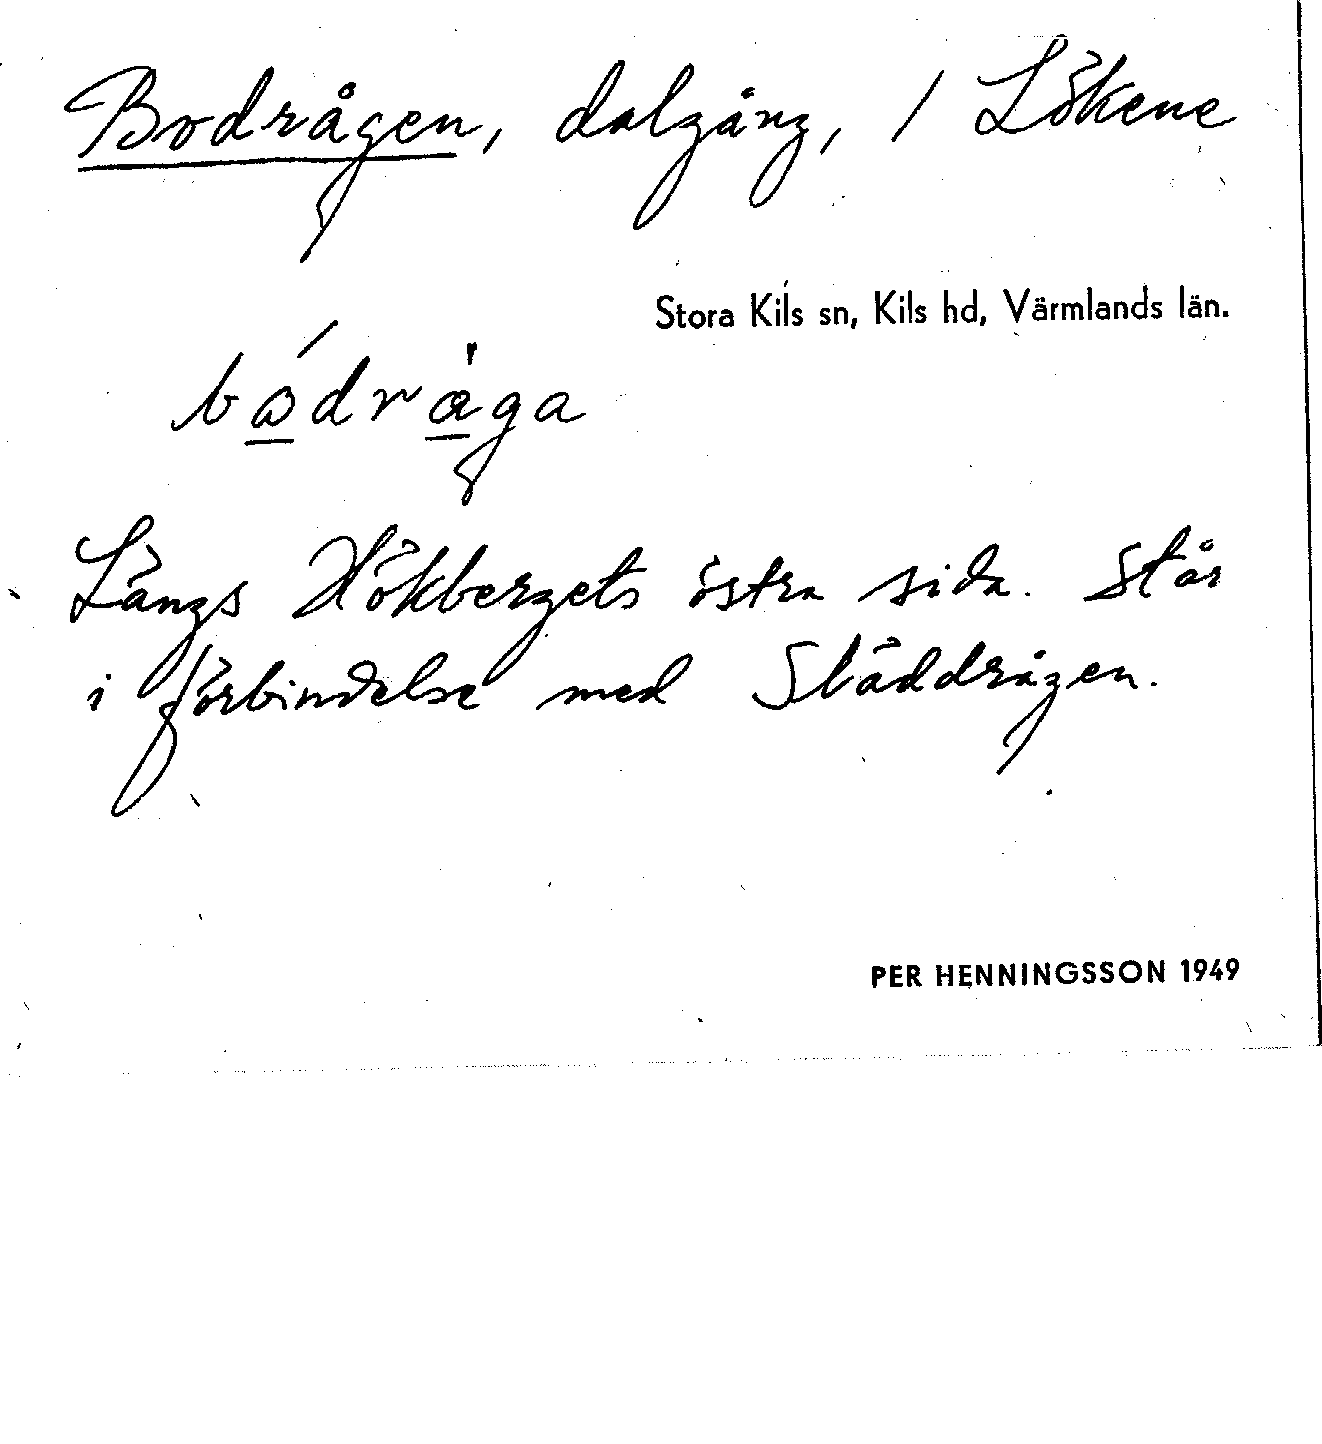 Bodrågen, dalgång, / Lökene
Stora Kils sn, Kils hd, Värmlands län.
Längs Hökbergets östra sida. Står
i förbindelse med Släddrågen.
PER HENNINGSSON 1949